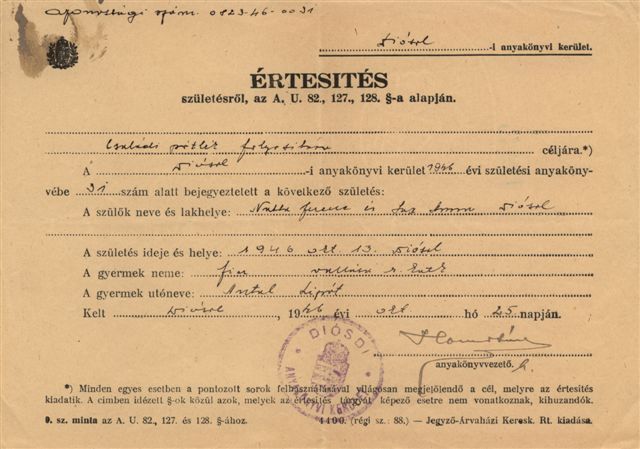 szám. 0823-46-0031
Diósd -i anyakönyvi kerület.
ÉRTESITÉS
születésről, az A. U. 82., 127., 128. §-a alapján.
Családi pótlék folyosítása céljára.*)
A Diósd -i anyakönyvi kerület 1946 évi születési anyaköny-
vébe 31 szám alatt bejegyeztetett a következő születés:
A szülők neve és lakhelye: Ferenc és Anna Diósd
A születés ideje és helye: 1946 okt. 13. Diósd
A gyermek neme: fiu vallása r. kath
A gyermek utóneve: Antal Lipót
Kelt Diósd, 1946 évi okt hó 25 napján.
DIÓSDI ANYAKÖNYVI KERÜLET
anyakönyvvezető.
*) Minden egyes esetben a pontozott sorok felhasználásával világosan megjelölendő a cél, melyre az értesítés
kiadatik. A cimben idézett §-ok közül azok, melyek az értesítés tárgyát képező esetre nem vonatkoznak, kihuzandók.
9. sz. minta az A. U. 82., 127. és 128. §-ához. 4400. (régi sz.: 88.) — Jegyző-Árvaházi Keresk. Rt. kiadása.